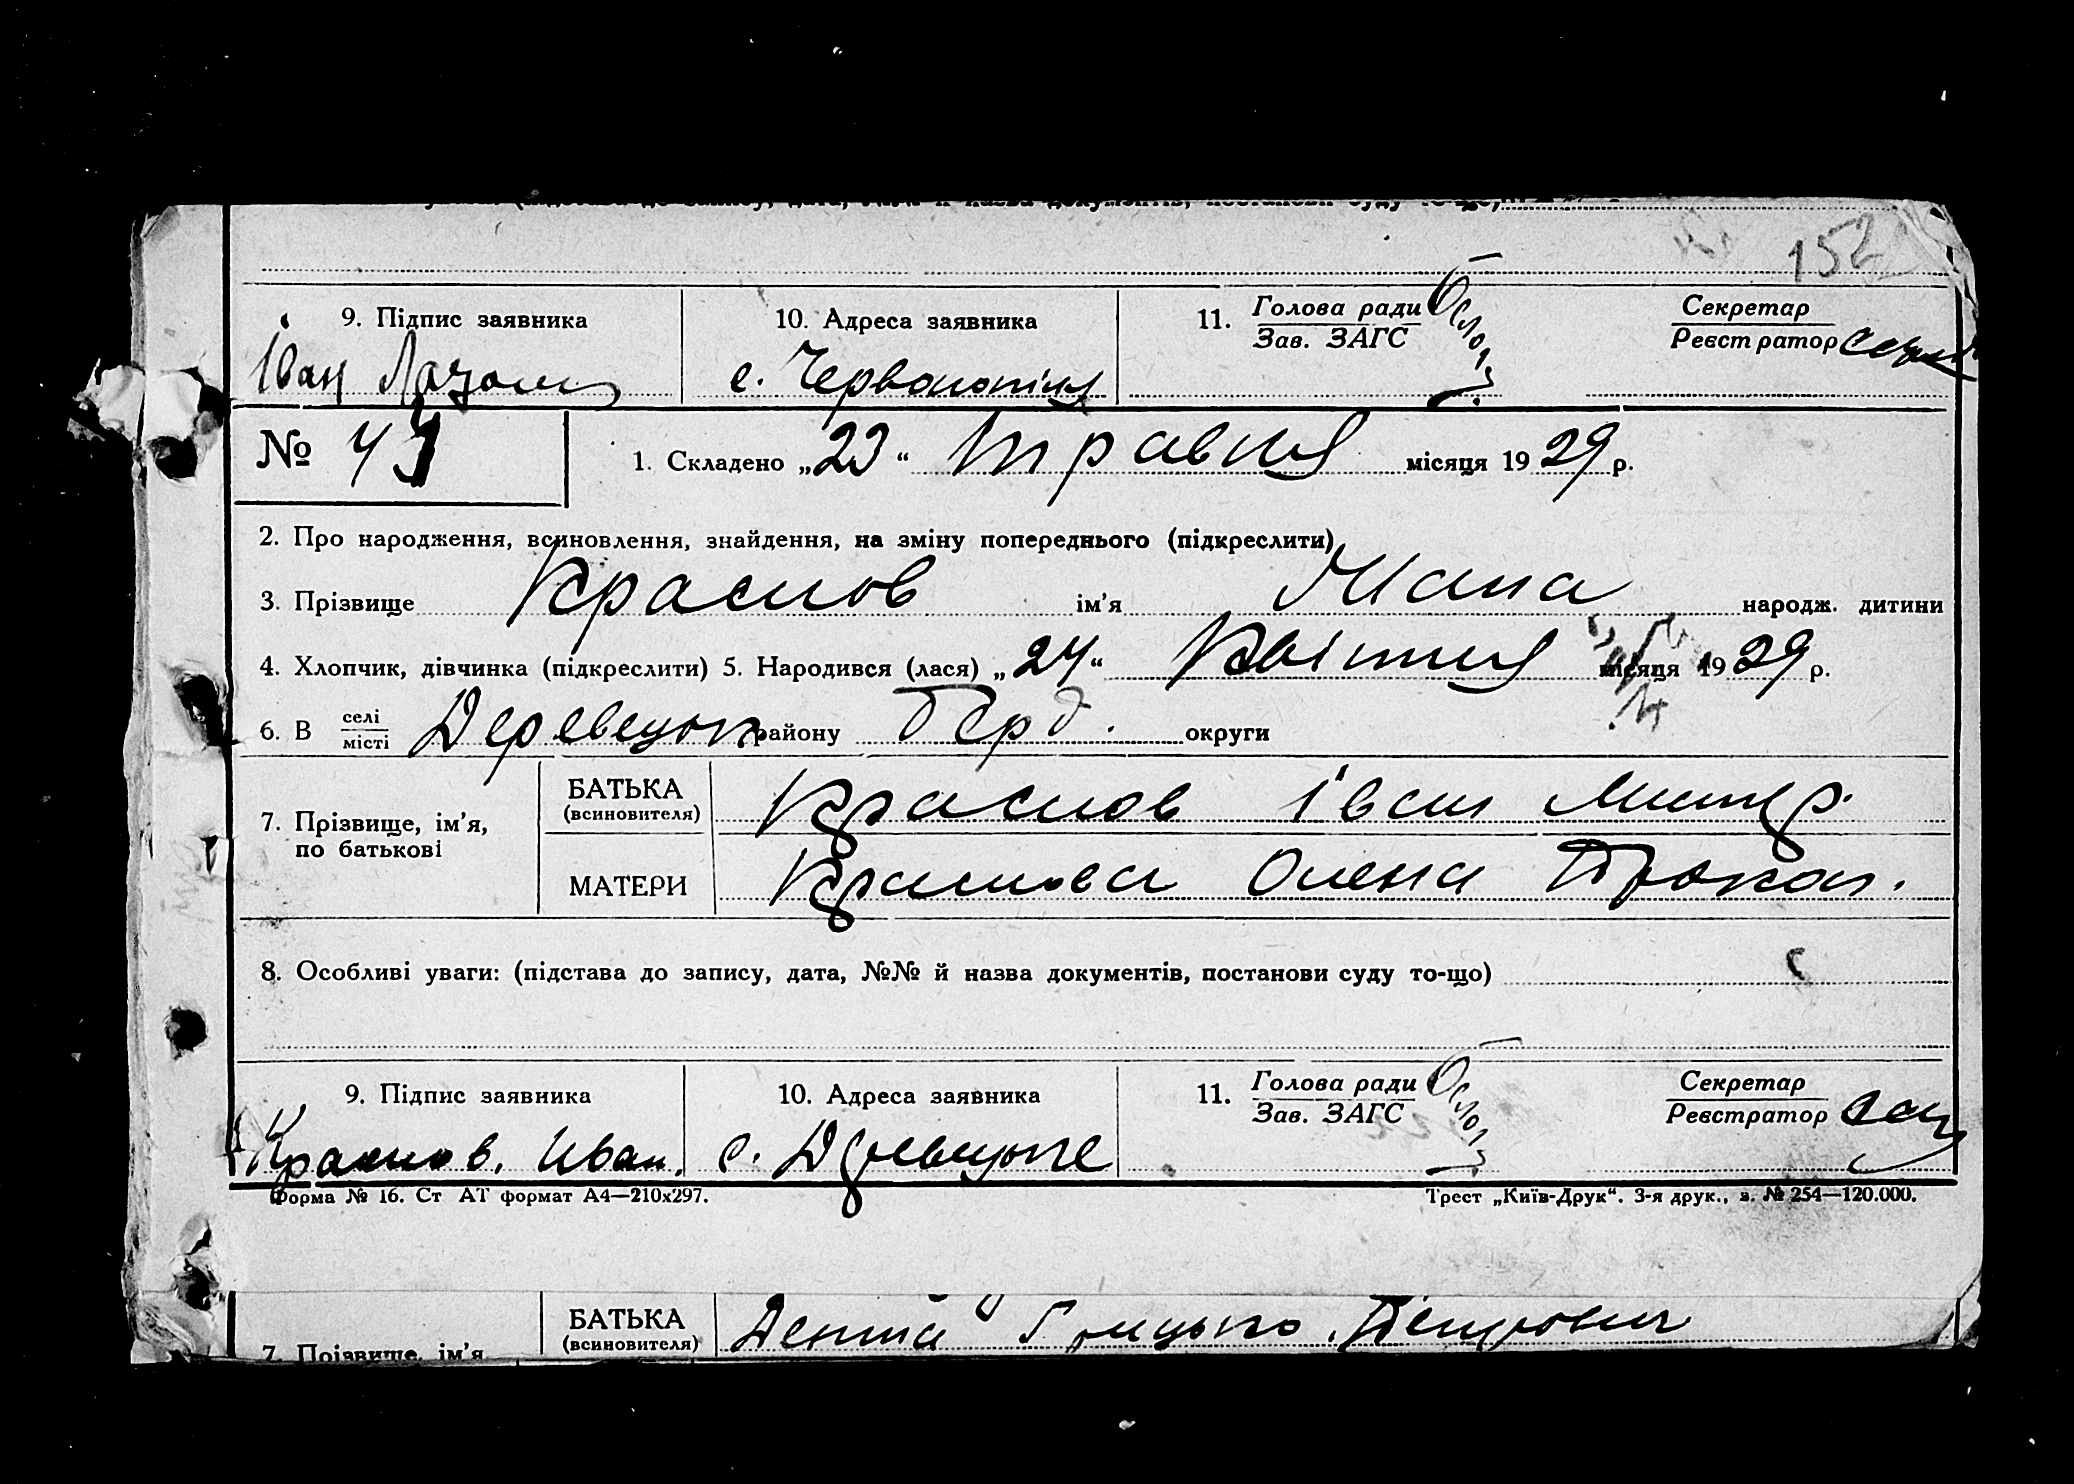 152
9. Підпис заявника
10. Адреса заявника
11. Голова ради
Зав. ЗАГС
Секретар
Реєстратор
Іван
с. Червонопілля
№ 43
1. Складено „23“ травня місяця 1929 р.
2. Про народження, всиновлення, знайдення, на зміну попереднього (підкреслити)
3. Прізвище Краснов ім'я народж. дитини
4. Хлопчик, дівчинка (підкреслити) 5. Народився (лася) „24“ Квітня місяця 1929 р.
6. В селі
місті Деревецьк району Берд. округи
7. Прізвище, ім'я,
по батькові
БАТЬКА
(всиновителя)
Краснов Іван Митр.
МАТЕРИ
Краснова Олена Прокоп.
8. Особливі уваги: (підстава до запису, дата, №№ й назва документів, постанови суду то-що)
9. Підпис заявника
10. Адреса заявника
11. Голова ради
Зав. ЗАГС
Секретар
Реєстратор
Краснов. Иван.
с.
Форма № 16. Ст АТ формат А4—210х297.
Трест „Київ-Друк“. 3-я друк., з. № 254—120.000.
7. Прізвище, ім'я
БАТЬКА
(всиновителя)
Грицько Петрович